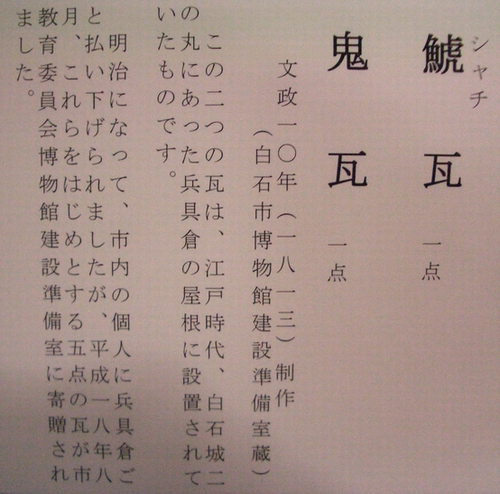 シャチ
鯱瓦 一点
鬼瓦 一点
文政一〇年(一八一三)制作
(白石市博物館建設準備室蔵)
この二つの瓦は、江戸時代、白石城二
の丸にあった兵具倉の屋根に設置されて
いたものです。
明治になって、市内の個人に兵具倉ご
と払い下げられましたが、平成一八年八
月、これらをはじめとする五点の瓦が市
教育委員会博物館建設準備室に寄贈され
ました。